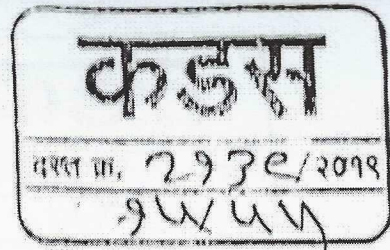 कडस
दस्त क्र. २१३९/२०१९
१५/५५